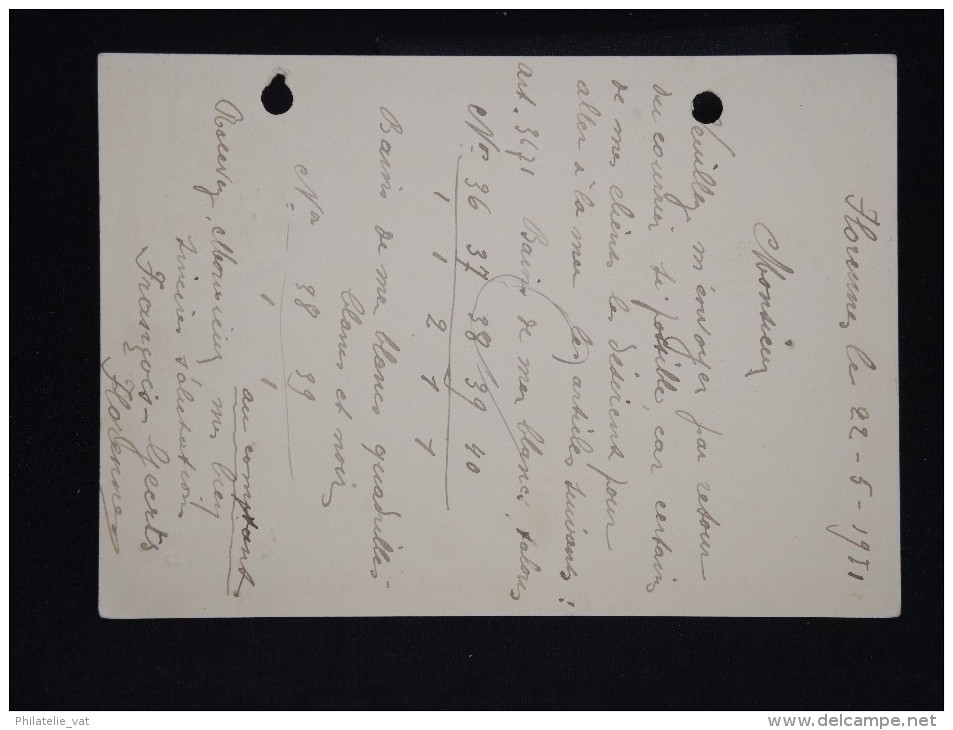 Florennes le 22-5-1951
Monsieur
Veuillez m'envoyer par retour
du courrier si possible, car certains
de mes clients les désirent pour
aller à la mer (les) articles suivants:
art. 3671 Bains de mer blancs, talons
Nos 36 37 38 39 40
1 1 2 1 1
Bains de mer blancs quadrillés
blancs et noirs
Nos 38 39
1 1
au comptant
Recevez, Monsieur, mes
sincères salutations
François Geerts
Florennes
Philatelie_vat
www.delcampe.net